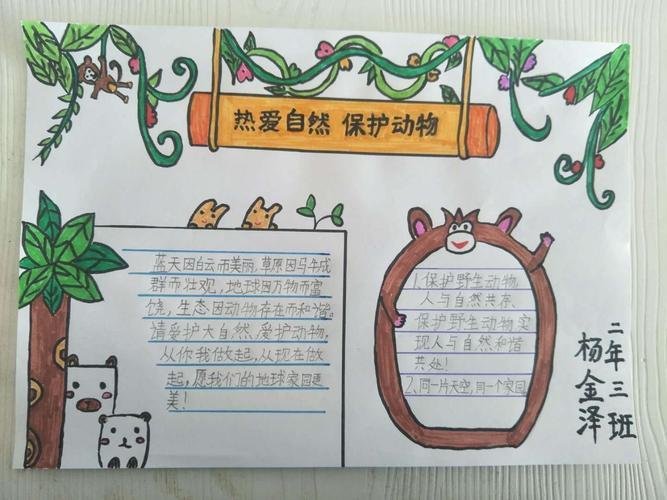 热爱自然 保护动物
蓝天因白云而美丽,草原因马牛成
群而壮观,地球因万物而富
饶,生态因动物存在而和谐。
请爱护大自然,爱护动物,
从你我做起,从现在做
起,愿我们的地球家园更
美!
1.保护野生动物,
人与自然共存。
保护野生动物实
现人与自然和谐
共处!
2、同一片天空,同一个家园。
二年三班
杨金泽